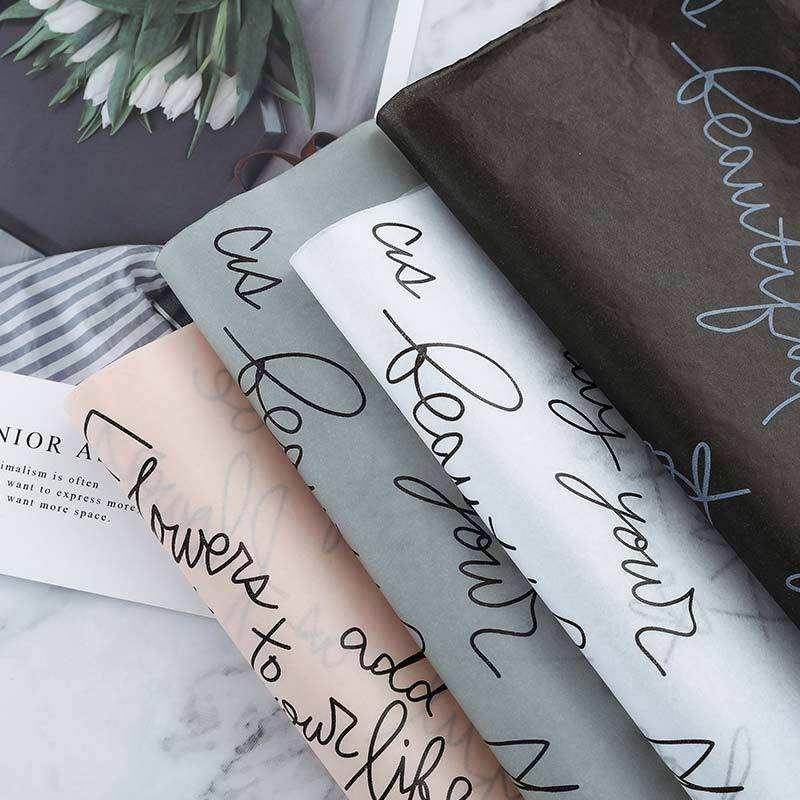 NIOR A
imalism is often
want to express more
want more space.
Flowers
to
add
your life
as
beau
your
as
beaut
your
beautiful